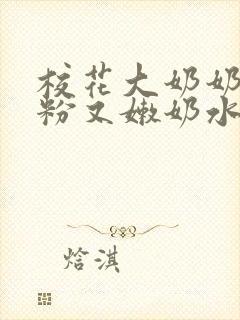 校花大奶奶
粉又嫩奶水
焓淇